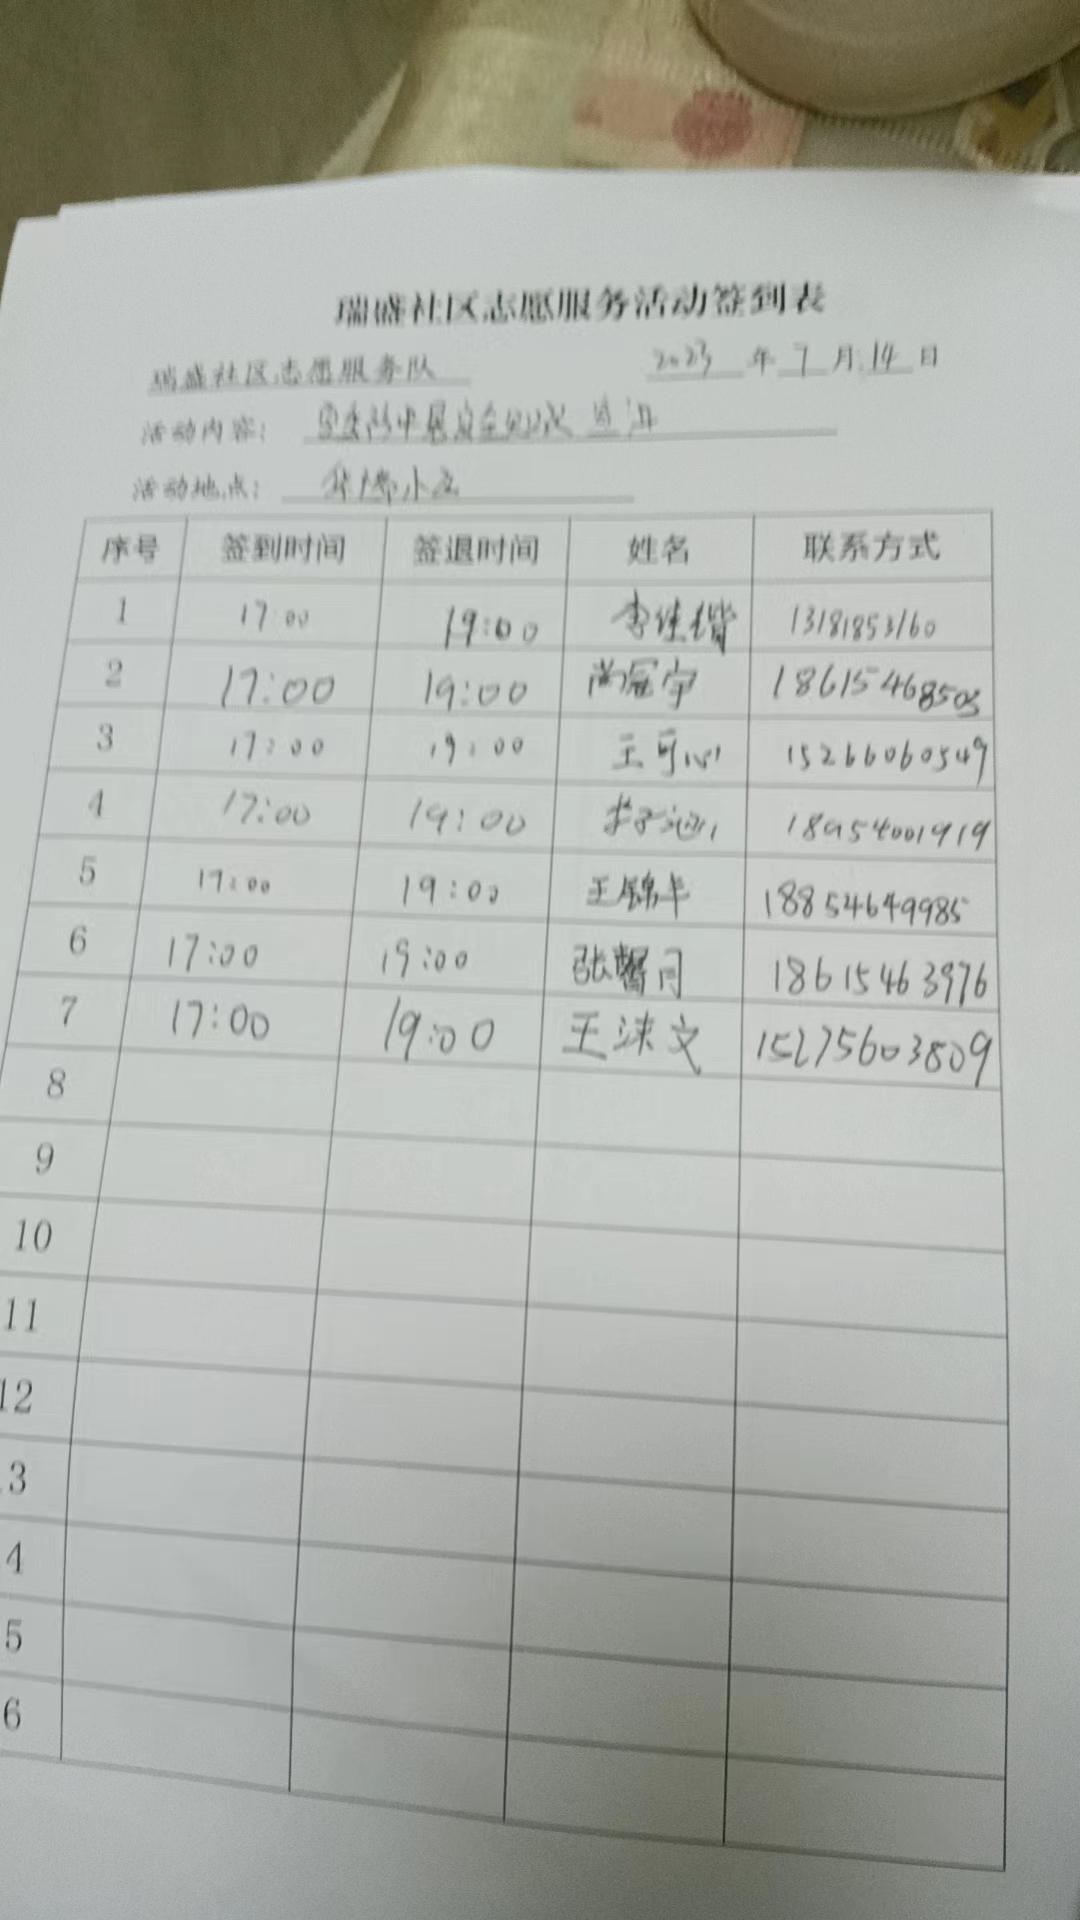 瑞盛社区志愿服务活动签到表
瑞盛社区志愿服务队 2023 年 7 月 14 日
活动内容：
活动地点： 小区
序号 签到时间 签退时间 姓名 联系方式
1 17:00 19:00 李佳锴 13181853160
2 17:00 19:00 尚冠宇 18615468503
3 17:00 19:00 王可心 15266060549
4 17:00 19:00 18954001919
5 17:00 19:00 王锦 18854649985
6 17:00 19:00 张馨月 18615463976
7 17:00 19:00 王沫文 15275603809
8
9
10
11
12
3
4
5
6